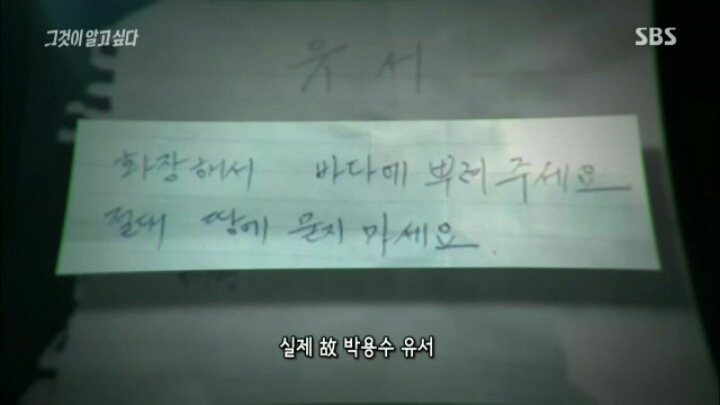 그것이 알고 싶다
SBS
유서
화장해서 바다에 뿌려 주세요
절대 땅에 묻지 마세요.
실제 故 박용수 유서